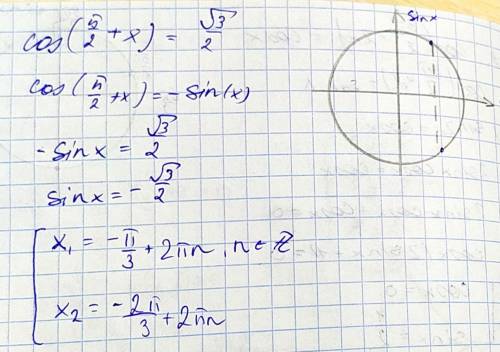 cos(π/2 + x) = √3/2
cos(π/2 + x) = - sin(x)
- sin x = √3/2
sin x = - √3/2
x₁ = - π/3 + 2πn, n ∈ ℤ
x₂ = - 2π/3 + 2πn
sin x